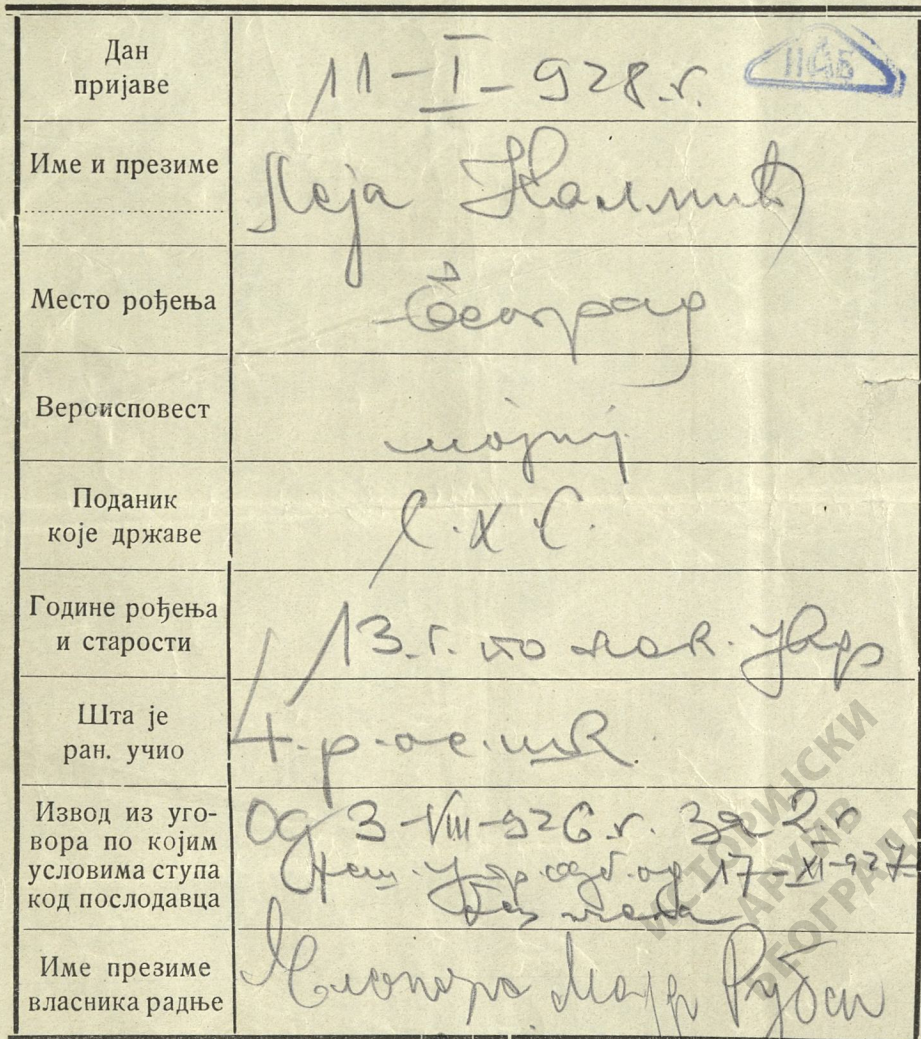 Дан
пријаве
11-I-928.г.
ИАБ
Име и презиме
Леја Калмић
Место рођења
Београд
Вероисповест
мојсиј
Поданик
које државе
С.Х.С.
Године рођења
и старости
13.г. по лек. увер
Шта је
ран. учио
4.р.ос.шк
Извод из уго-
вора по којим
условима ступа
код послодавца
Од 3-VIII-926.г. за 2 г
од 17-XI-927-
без
Име презиме
власника радње
ИСТОРИЈСКИ
АРХИВ
БЕОГРАДА